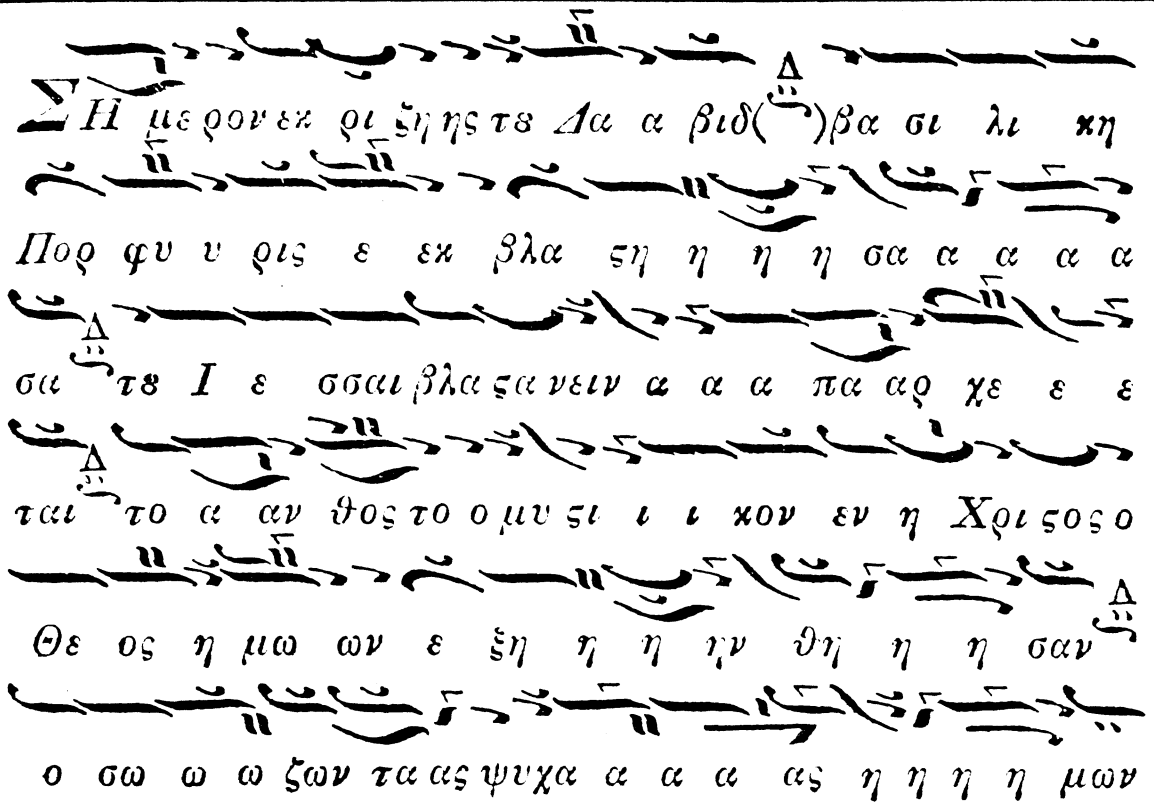 ΣΗ με ρον εκ ρι ζη ης τȣ Δα α βιδ(Δ)βα σι λι κη
Πορ φυ υ ρις ε εκ βλα ϛη η η η σα α α α α
σα Δ τȣ Ι ε σσαι βλα ϛα νειν α α α πα αρ χε ε ε
ται Δ το α αν θος το ο μυ ϛι ι ι κον εν η Χρι ϛος ο
Θε ος η μω ων ε ξη η η ην θη η η σαν Δ
ο σω ω ω ζων τα ας ψυ χα α α α ας η η η η μων